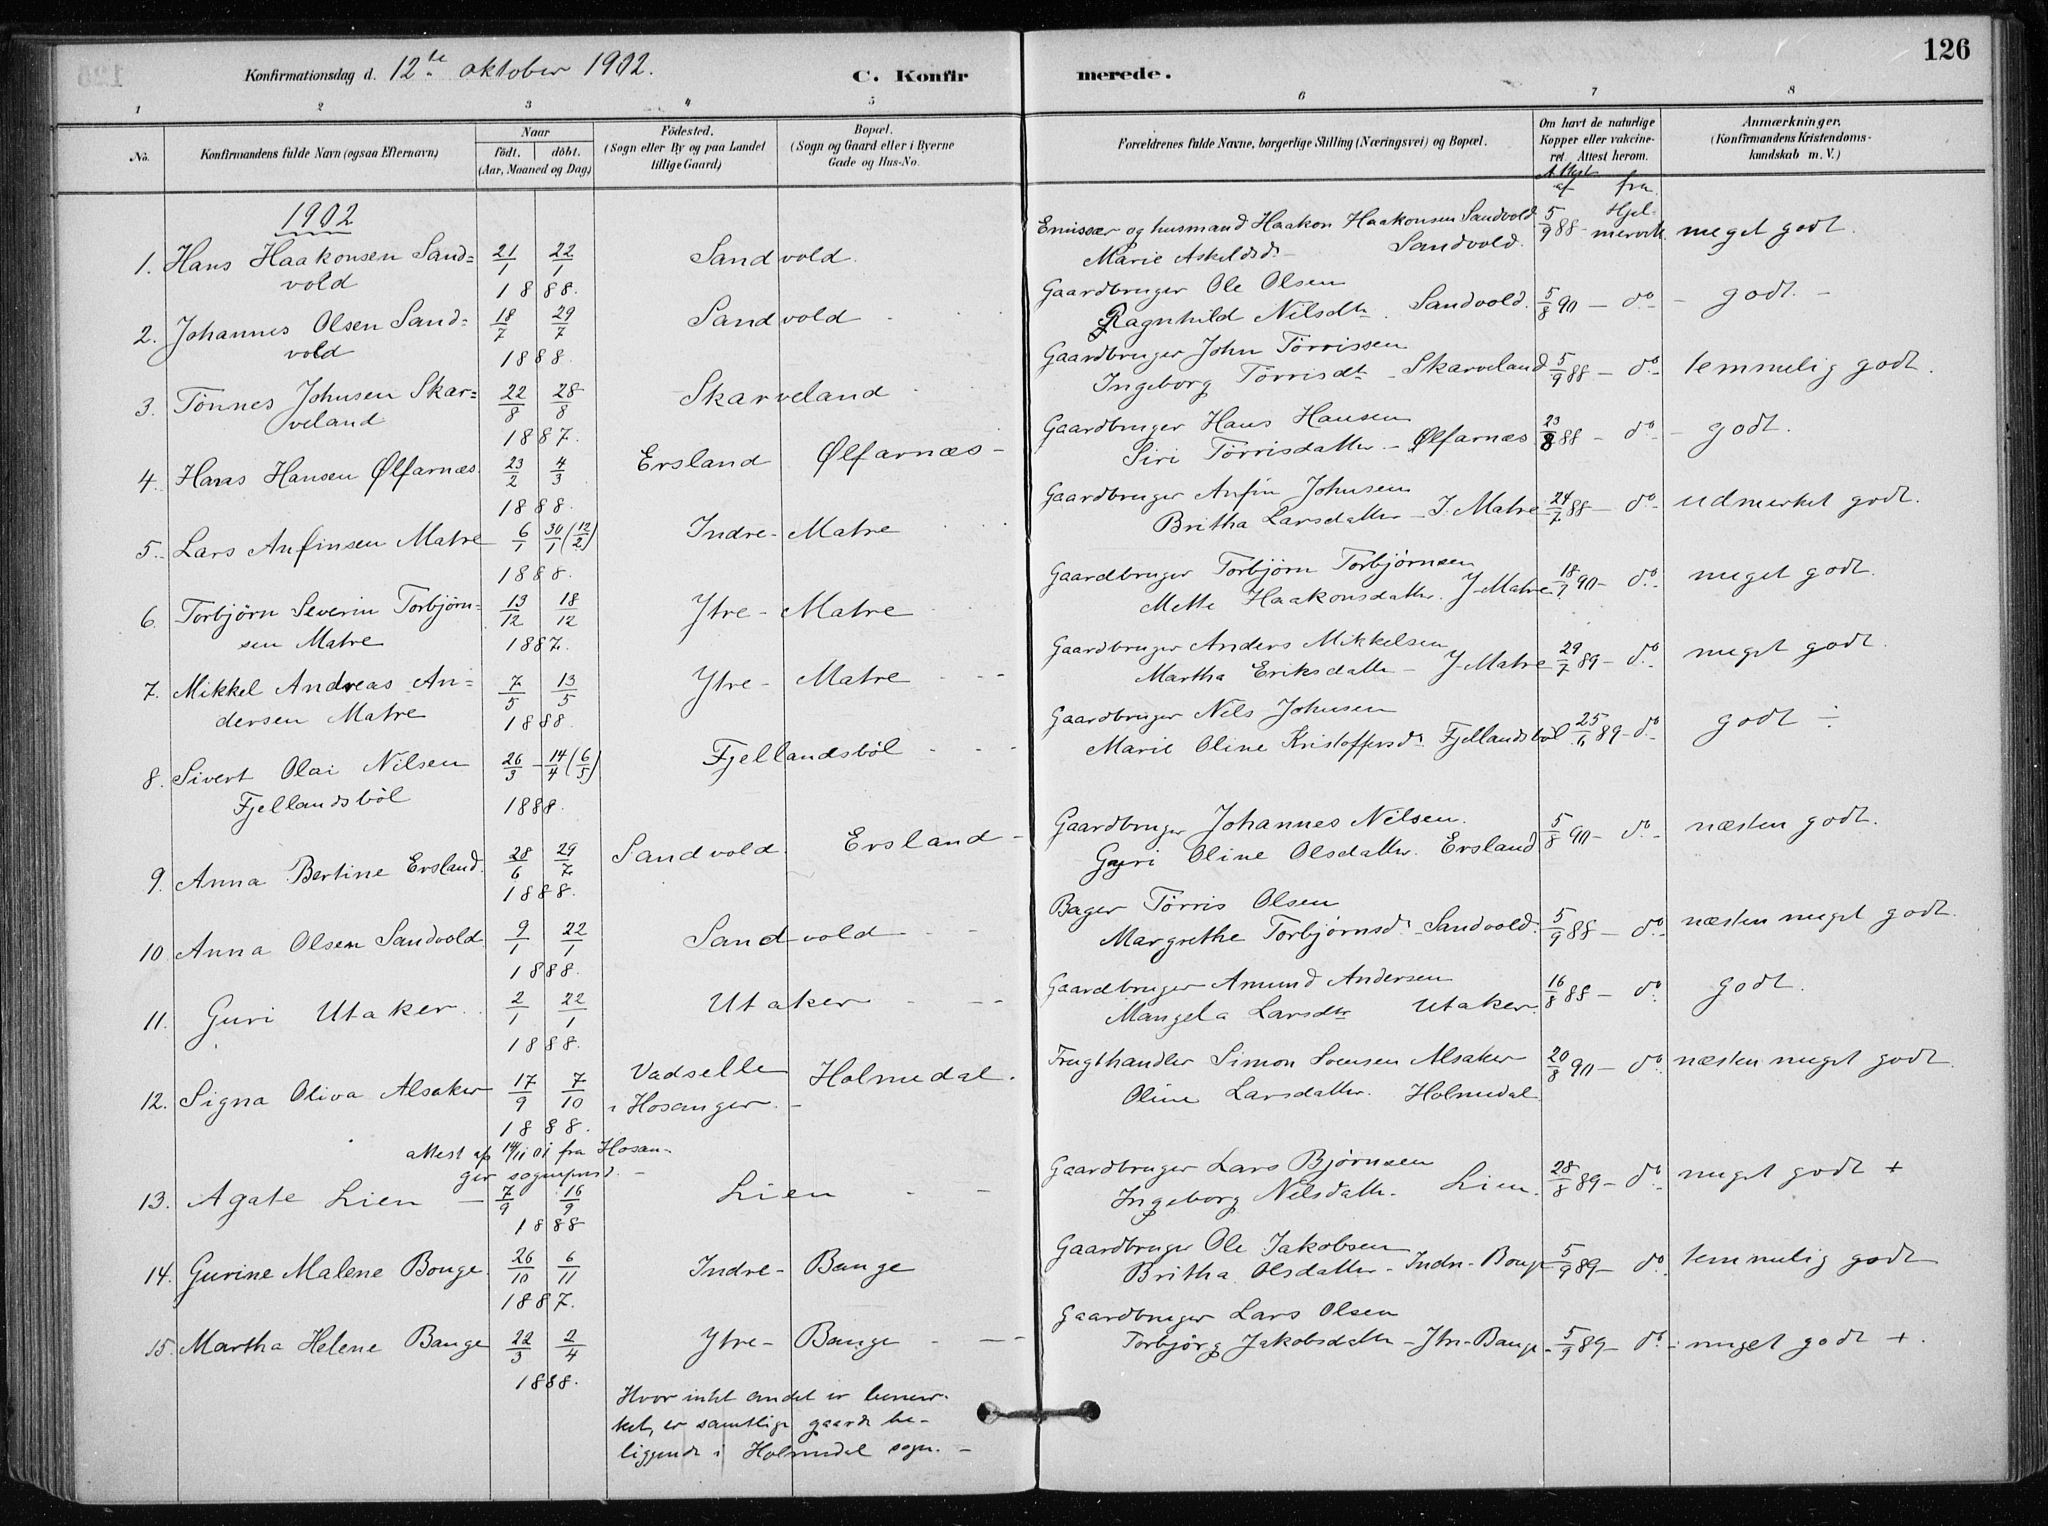 126
Konfirmationsdag d. 12te oktober 1902.
C. Konfirmerede.
1 2 3 4 5 6 7 8
No.
Konfirmandens fulde Navn (ogsaa Efternavn)
Naar
födt. döbt.
(Aar, Maaned og Dag)
Födested.
(Sogn eller By og paa Landet
tillige Gaard)
Bopæl.
(Sogn og Gaard eller i Byerne
Gade og Hus-No.
Forældrenes fulde Navne, borgerlige Stilling (Næringsvei) og Bopæl.
Om havt de naturlige
Kopper eller vakcine-
ret. Attest herom.
Anmærkninger,
(Konfirmandens Kristendoms-
kundskab m. V.)
Attest
af fra
1902
1. Hans Haakonsen Sand= 21/1 22/1 Sandvold. Emissær og husmand Haakon Haakonsen Sandvold 5/9 88 - Hjel-
vold 1888. Marie Askeldsd - Sandvold. mervik. meget godt.
2. Johannes Olsen Sand= 18/7 29/7 Sandvold Gaardbruger Ole Olsen
vold 1888. Ragnhild Nilsdtr. Sandvold. 5/8 90 - do - godt. -
3. Tönnes Johnsen Skar= 22/8 28/8 Skarveland Gaardbruger John Tørrissen
veland 1887. Ingeborg Tørrisdt - Skarveland 5/9 88 - do - temmelig godt.
4. Hans Hansen Ølfarnæs. 23/2 4/3 Ersland Ølfarnæs - Gaardbruger Hans Hansen
1888. Siri Tørrisdatter - Ølfarnæs 23/8 88 - do - godt.
5. Lars Anfinsen Matre 6/1 30/1 (12/2) Indre- Matre Gaardbruger Anfin Johnsen
1888. Britha Larsdatter - I. Matre 24/7 88 - do - udmerket godt.
6. Torbjørn Severin Torbjørn- 13/12 18/12 Ytre- Matre Gaardbruger Torbjörn Torbjørnsen
sen Matre 1887. Mette Haakonsdatter. Y-Matre 18/7 90 - do - meget godt.
7. Mikkel Andreas An- 7/5 13/5 Ytre- Matre - - - Gaardbruger Anders Mikkelsen
dersen Matre 1888. Martha Eriksdatter - Y-Matre 29/7 89 - do - meget godt.
8. Sivert Olai Nilsen 26/3 - 14/4 (6/5) Fjellandsböl - - - Gaardbruger Nils Johnsen
Fjellandsböl 1888. Marie Oline Kristoffersdt Fjellandsböl 25/6 89 - do - godt ÷
9. Anna Bertine Ersland. 28/6 29/7 Sandvold. Ersland - Gaardbruger Johannes Nilsen.
1888. Guri Oline Olsdatter. Ersland 5/8 90 - do - næsten godt.
10 Anna Olsen Sandvold 9/1 22/1 Sandvold - - Bager Tørris Olsen
1888. Margrethe Torbjørnsdt Sandvold. 5/9 88 - do - næsten meget godt.
11. Guri Utaker. 2/1 22/1 Utaker - - - Gaardbruger Amund Andersen
1888. Mangela Larsdtr Utaker. 16/8 88 - do. godt.
12. Signa Oliva Alsaker 17/9 7/10 Vadselle Holmedal. Frugthandler Simon Svensen Alsaker 20/8 90 - do. næsten meget godt.
1888. i Hosanger. - Oline Larsdatter. Holmedal.
attest af 14/11 01 fra Hosan-
ger sogneprest. -
13. Agate Lien - 7/9 16/9 Lien - - Gaardbruger Lars Bjørnsen
1888 Ingeborg Nilsdatter. Lien. 28/8 89 - do - meget godt +
14. Gurine Malene Bonge. 26/10 6/11 Indre- Bange Gaardbruger Ole Jakobsen
1887. Britha Olsdatter - Indre- Bonge 5/9 89 - do. temmelig godt
15. Martha Helene Bange 22/3 2/4 Ytre- Bange - - - Gaardbruger Lars Olsen
1888. Torbjörg Jakobsdatter - Ytre- Bange - 5/9 89 - do - meget godt +.
Hvor intet andet er bemer-
ket, er samtlige gaarde be-
liggende i Holmedal sogn. -